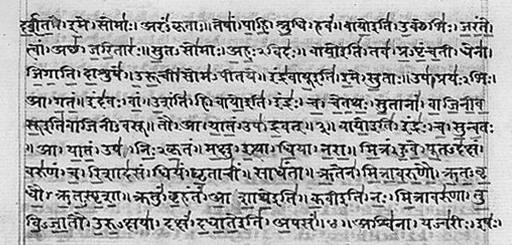 दर्शत इमे सोमाः। अरंऽकृताः॥ तेषां पाहि श्रुधि हवं॥ वायोइति उक्थेभिः जरंते
त्वां अच्छ जरितारः॥ सुतऽसोमाः अहःऽविदः॥ वायोइति तव प्रऽपृंचती धेना
जिगाति दाशुषे॥ उरूची सोमऽपीतये॥ इंद्रवायूइति इमे सुताः॥ उप प्रयःऽभिः
आ गतं॥ इंदवः वां उशंति हि॥ वायोइति इंद्रः च चेतथः सुतानां वाजिनीव
सूइतिवाजिनीऽवसू॥ तौ आ यातं उप द्रवत्॥३॥ वायोइति इंद्रः च सुन्वतः
॥ आ यातं उप निःऽकृतं मक्षु इत्था धिया नरा॥ मित्रं हुवे पूतऽदक्षं
वरुणं च रिशादसं॥ धियं घृताचीं साधंता॥ ऋतेन मित्रावरुणौ ऋतऽवृ
धौ ऋतऽस्पृशा॥ क्रतुं बृहंतं आशाथेइति॥ कवीइति नः मित्रावरुणा तु
विऽजातौ उरुऽक्षया दक्षं दधातेइति अपसं॥४॥ अश्विना यज्वरीः इषः